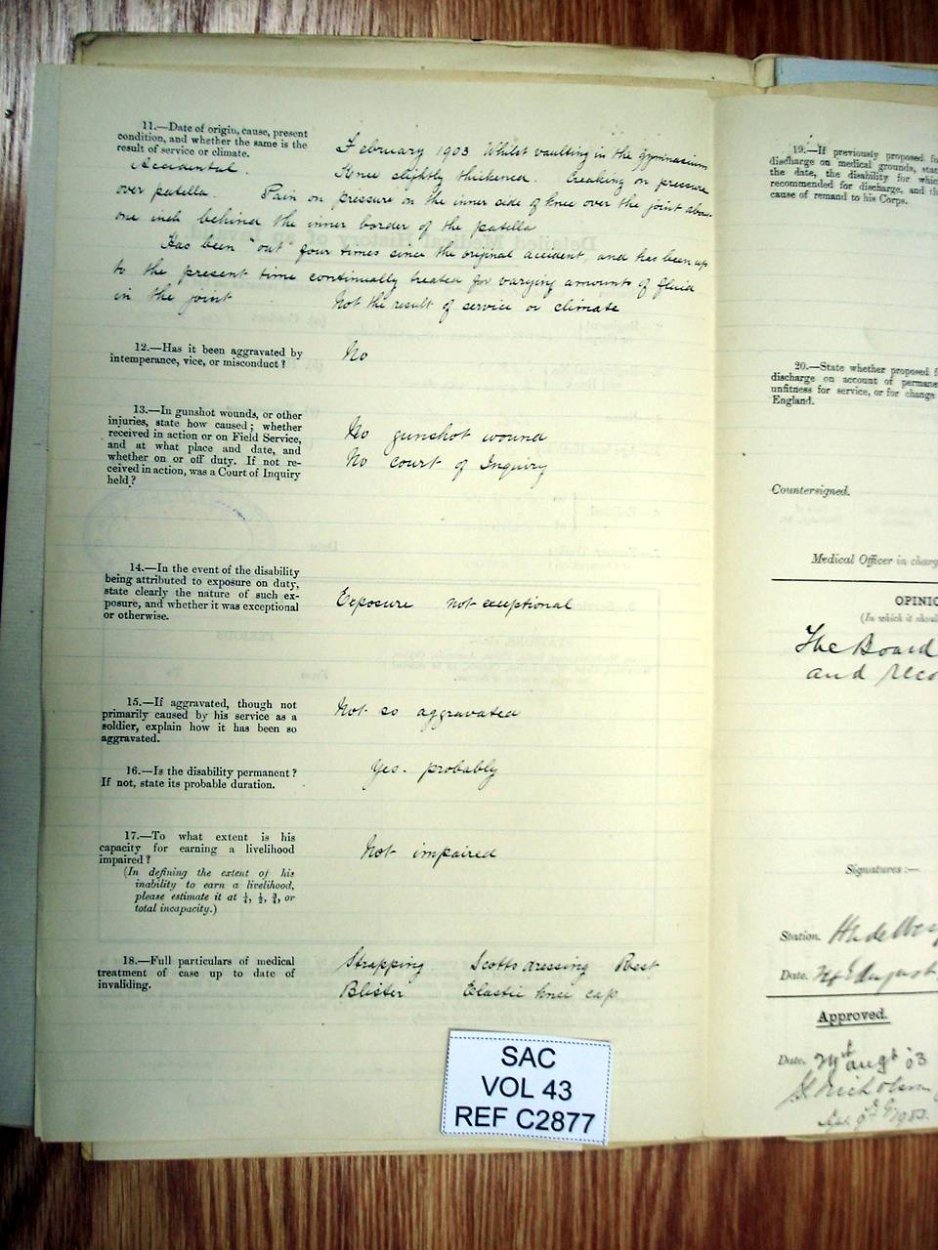 11.—Date of origin, cause, present
condition, and whether the same is the
result of service or climate.
Accidental.
February 1903 Whilst vaulting in the Gymnasium
Knee slightly thickened. Creaking on pressure
over patella. Pain on pressure on the inner side of knee over the joint abou
one inch behind the inner border of the patella
Has been "out" four times since the original accident and has been up
to the present time continually treated for varying amounts of fluid
in the joint Not the result of service or climate
12.—Has it been aggravated by
intemperance, vice, or misconduct?
No
13.—In gunshot wounds, or other
injuries, state how caused; whether
received in action or on Field Service,
and at what place and date, and
whether on or off duty. If not re-
ceived in action, was a Court of Inquiry
held?
No gunshot wound
No court of Inquiry
14.—In the event of the disability
being attributed to exposure on duty,
state clearly the nature of such ex-
posure, and whether it was exceptional
or otherwise.
Exposure not exceptional
15.—If aggravated, though not
primarily caused by his service as a
soldier, explain how it has been so
aggravated.
Not so aggravated
16.—Is the disability permanent?
If not, state its probable duration.
Yes. probably
17.—To what extent is his
capacity for earning a livelihood
impaired?
(In defining the extent of his
inability to earn a livelihood,
please estimate it at ¼, ½, ¾, or
total incapacity.)
Not impaired
18.—Full particulars of medical
treatment of case up to date of
invaliding.
Strapping Scotts dressing Rest
Blister Elastic knee cap
SAC
VOL 43
REF C2877
19.—If previously proposed fo
discharge on medical grounds, stat
the date, the disability for whic
recommended for discharge, and th
cause of remand to his Corps.
20.—State whether proposed f
discharge on account of permane
unfitness for service, or for change
England.
Countersigned.
Medical Officer in charg
OPINIO
(In which it shoul
The Board
and reco
Signatures:—
Station.
Date. August
Approved.
Date. augt 03
1903